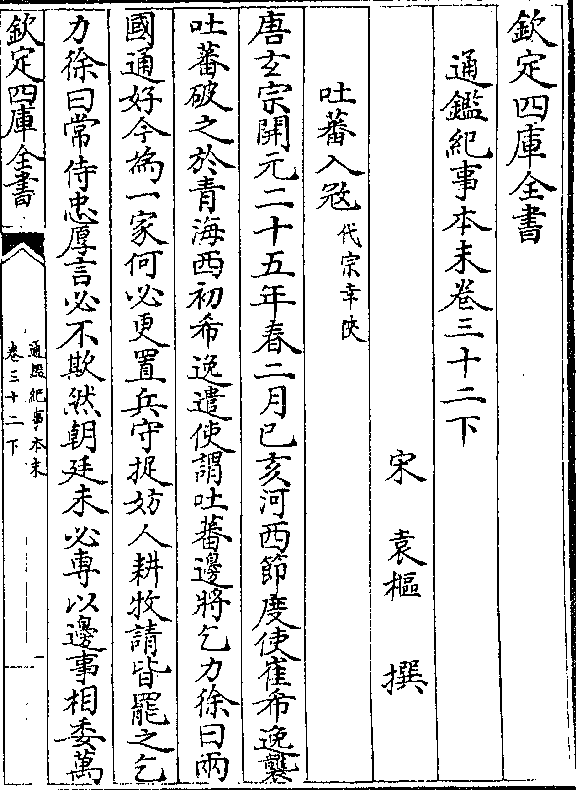 欽定四庫全書
通鑑紀事本末卷三十二下
宋 袁樞 撰
吐蕃入㓂 代宗幸陜
唐玄宗開元二十五年春二月已亥河西節度使崔希逸襲
吐蕃破之於青海西初希逸遣使謂吐蕃邊將乞力徐曰兩
國通好今為一家何必更置兵守捉妨人耕牧請皆罷之乞
力徐曰常侍忠厚言必不欺然朝廷未必專以邊事相委萬
欽定四庫全書
通鑑紀事本末
卷三十二下